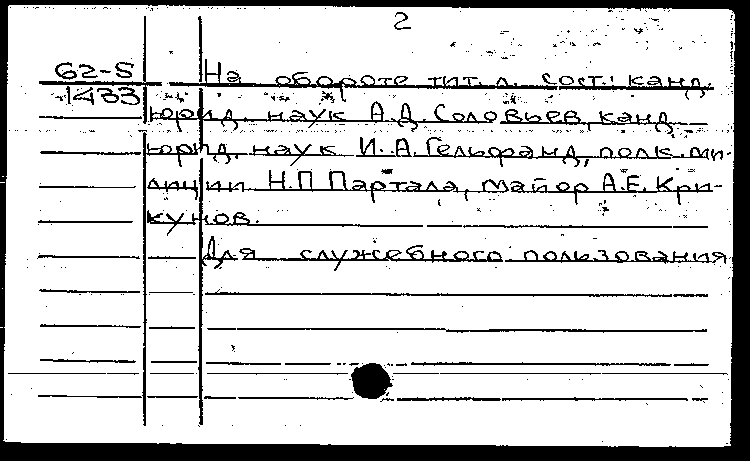 2
62-5 На обороте тит. л. сост.: канд.
1433 юрид. наук А.Д. Соловьев, канд
юрид. наук И.А. Гельфанд, полк. ми-
лиции Н.П Партала, майор А.Е. Кри-
кунов.
Для служебного пользования